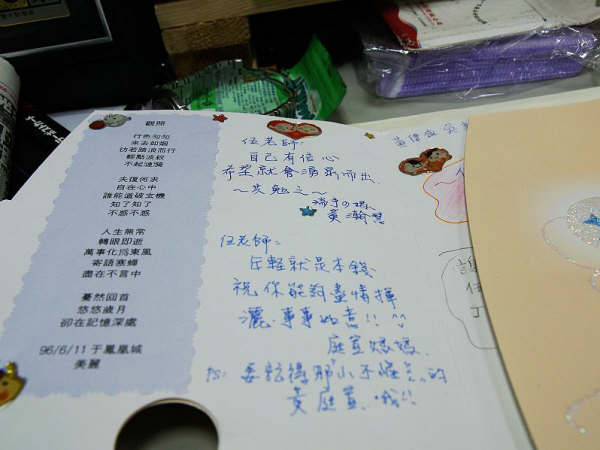 觀照
行色匆匆
來去如烟
彷若踏浪而行
輕點淡紋
不起漣漪
夫復何求
自在心中
誰能道破玄機
知了知了
不惑不惑
人生無常
轉眼即逝
萬事化爲東風
寄語寒蟬
盡在不言中
驀然回首
悠悠歲月
卻在記憶深處
96/6/11于鳳凰城
美麗
伍老師:
自己有信心
希望就會湧新而出.
~共勉之~
黃瀚慧
伍老師:
年輕就是本錢
祝你能夠盡情揮
灑.事事如意!! ^^
庭萱媽媽.
PS: 要記得那小不隆咚的
黃庭萱.哦!!